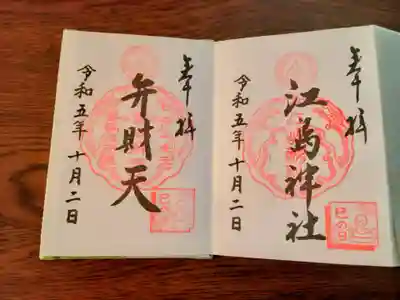 奉拝
江島神社
令和五年十月二日
奉拝
弁財天
令和五年十月二日